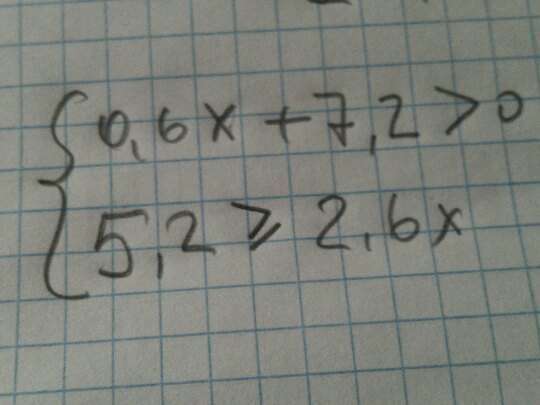 0,6x + 7,2 > 0
5,2 ⩾ 2,6x